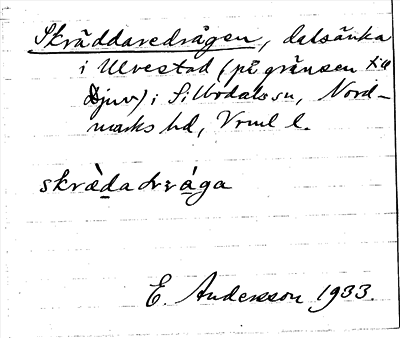 Skräddaredrågen, dalsänka
i Ulvestad (på gränsen till
Djuv) i Sillbodals sn, Nord-
marks hd, Vrml l.
skrædadråga
E. Andersson 1933.